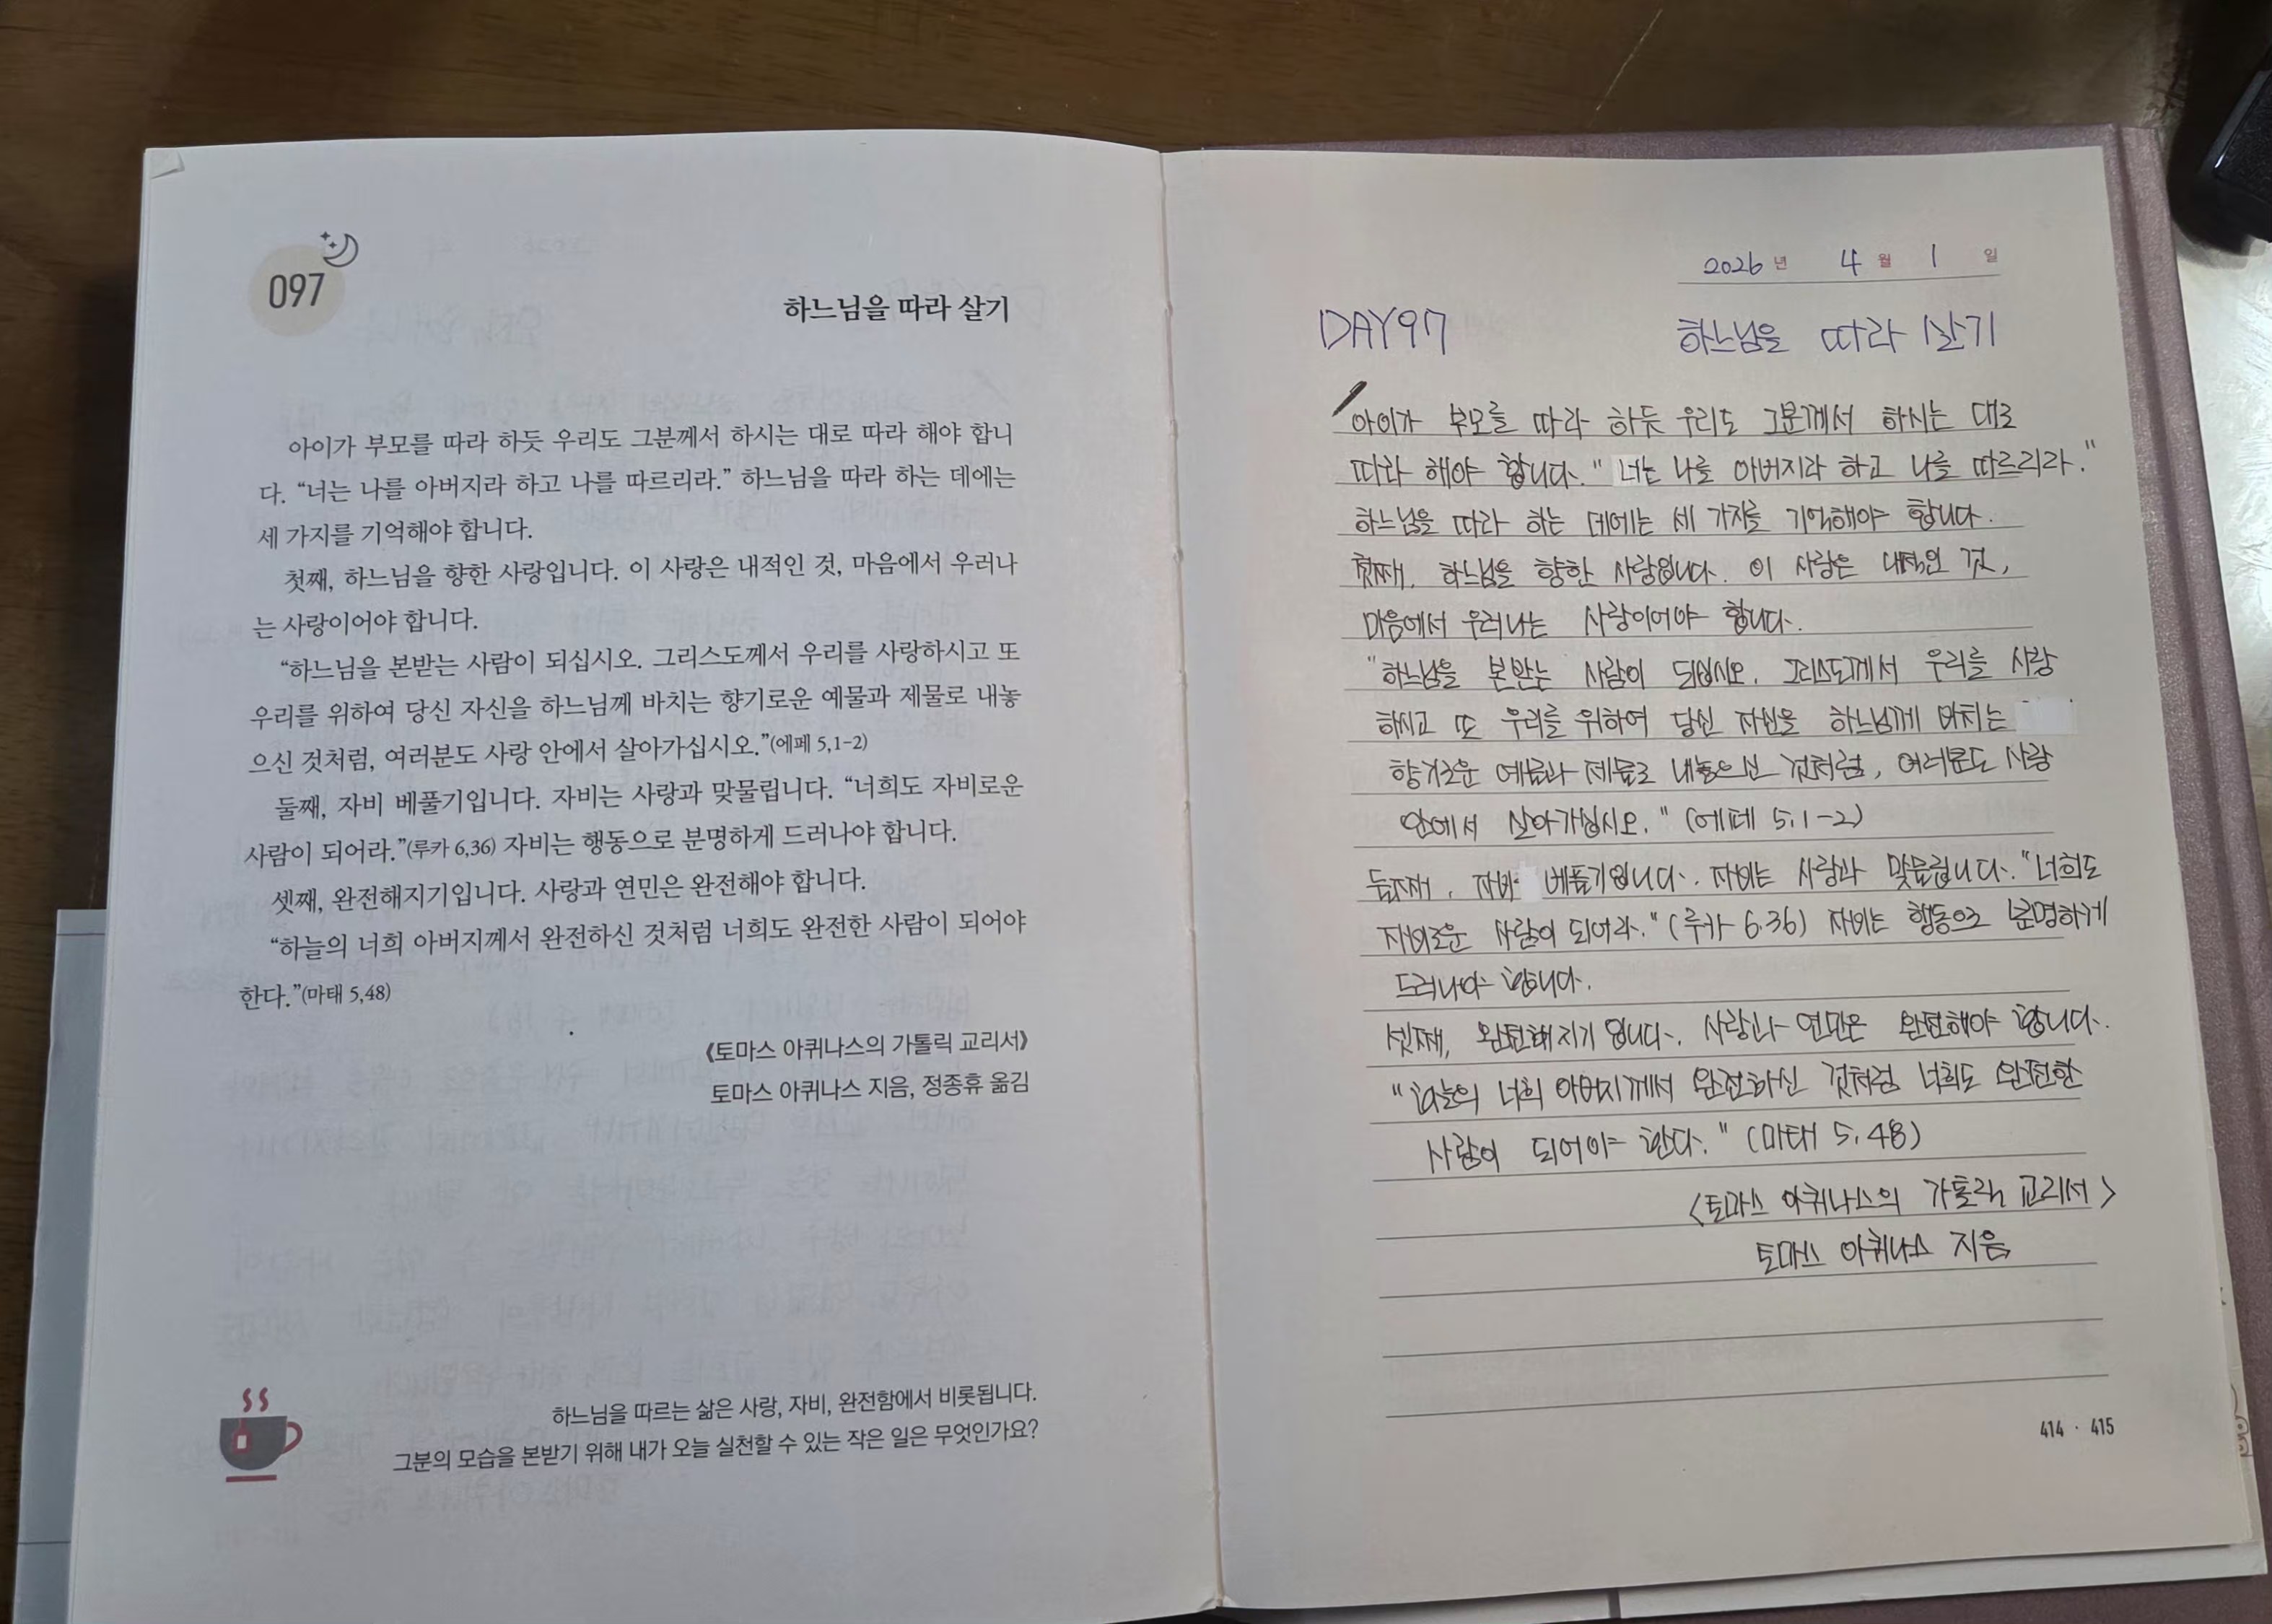 097
하느님을 따라 살기
아이가 부모를 따라 하듯 우리도 그분께서 하시는 대로 따라 해야 합니
다. “너는 나를 아버지라 하고 나를 따르리라.” 하느님을 따라 하는 데에는
세 가지를 기억해야 합니다.
첫째, 하느님을 향한 사랑입니다. 이 사랑은 내적인 것, 마음에서 우러나
는 사랑이어야 합니다.
“하느님을 본받는 사람이 되십시오. 그리스도께서 우리를 사랑하시고 또
우리를 위하여 당신 자신을 하느님께 바치는 향기로운 예물과 제물로 내놓
으신 것처럼, 여러분도 사랑 안에서 살아가십시오.”(에페 5,1-2)
둘째, 자비 베풀기입니다. 자비는 사랑과 맞물립니다. “너희도 자비로운
사람이 되어라.”(루카 6,36) 자비는 행동으로 분명하게 드러나야 합니다.
셋째, 완전해지기입니다. 사랑과 연민은 완전해야 합니다.
“하늘의 너희 아버지께서 완전하신 것처럼 너희도 완전한 사람이 되어야
한다.”(마태 5,48)
《토마스 아퀴나스의 가톨릭 교리서》
토마스 아퀴나스 지음, 정종휴 옮김
하느님을 따르는 삶은 사랑, 자비, 완전함에서 비롯됩니다.
그분의 모습을 본받기 위해 내가 오늘 실천할 수 있는 작은 일은 무엇인가요?
2026년 4월 1일
DAY97 하느님을 따라 살기
아이가 부모를 따라 하듯 우리도 그분께서 하시는 대로
따라 해야 합니다. "너는 나를 아버지라 하고 나를 따르리라."
하느님을 따라 하는 데에는 세 가지를 기억해야 합니다.
첫째, 하느님을 향한 사랑입니다. 이 사랑은 내적인 것,
마음에서 우러나는 사랑이어야 합니다.
"하느님을 본받는 사람이 되십시오. 그리스도께서 우리를 사랑
하시고 또 우리를 위하여 당신 자신을 하느님께 바치는
향기로운 예물과 제물로 내놓으신 것처럼, 여러분도 사랑
안에서 살아가십시오." (에페 5,1-2)
둘째, 자비 베풀기입니다. 자비는 사랑과 맞물립니다. "너희도
자비로운 사람이 되어라." (루카 6.36) 자비는 행동으로 분명하게
드러나야 합니다.
셋째, 완전해지기입니다. 사랑과 연민은 완전해야 합니다.
"하늘의 너희 아버지께서 완전하신 것처럼 너희도 완전한
사람이 되어야 한다." (마태 5,48)
<토마스 아퀴나스의 가톨릭 교리서>
토마스 아퀴나스 지음
414 · 415